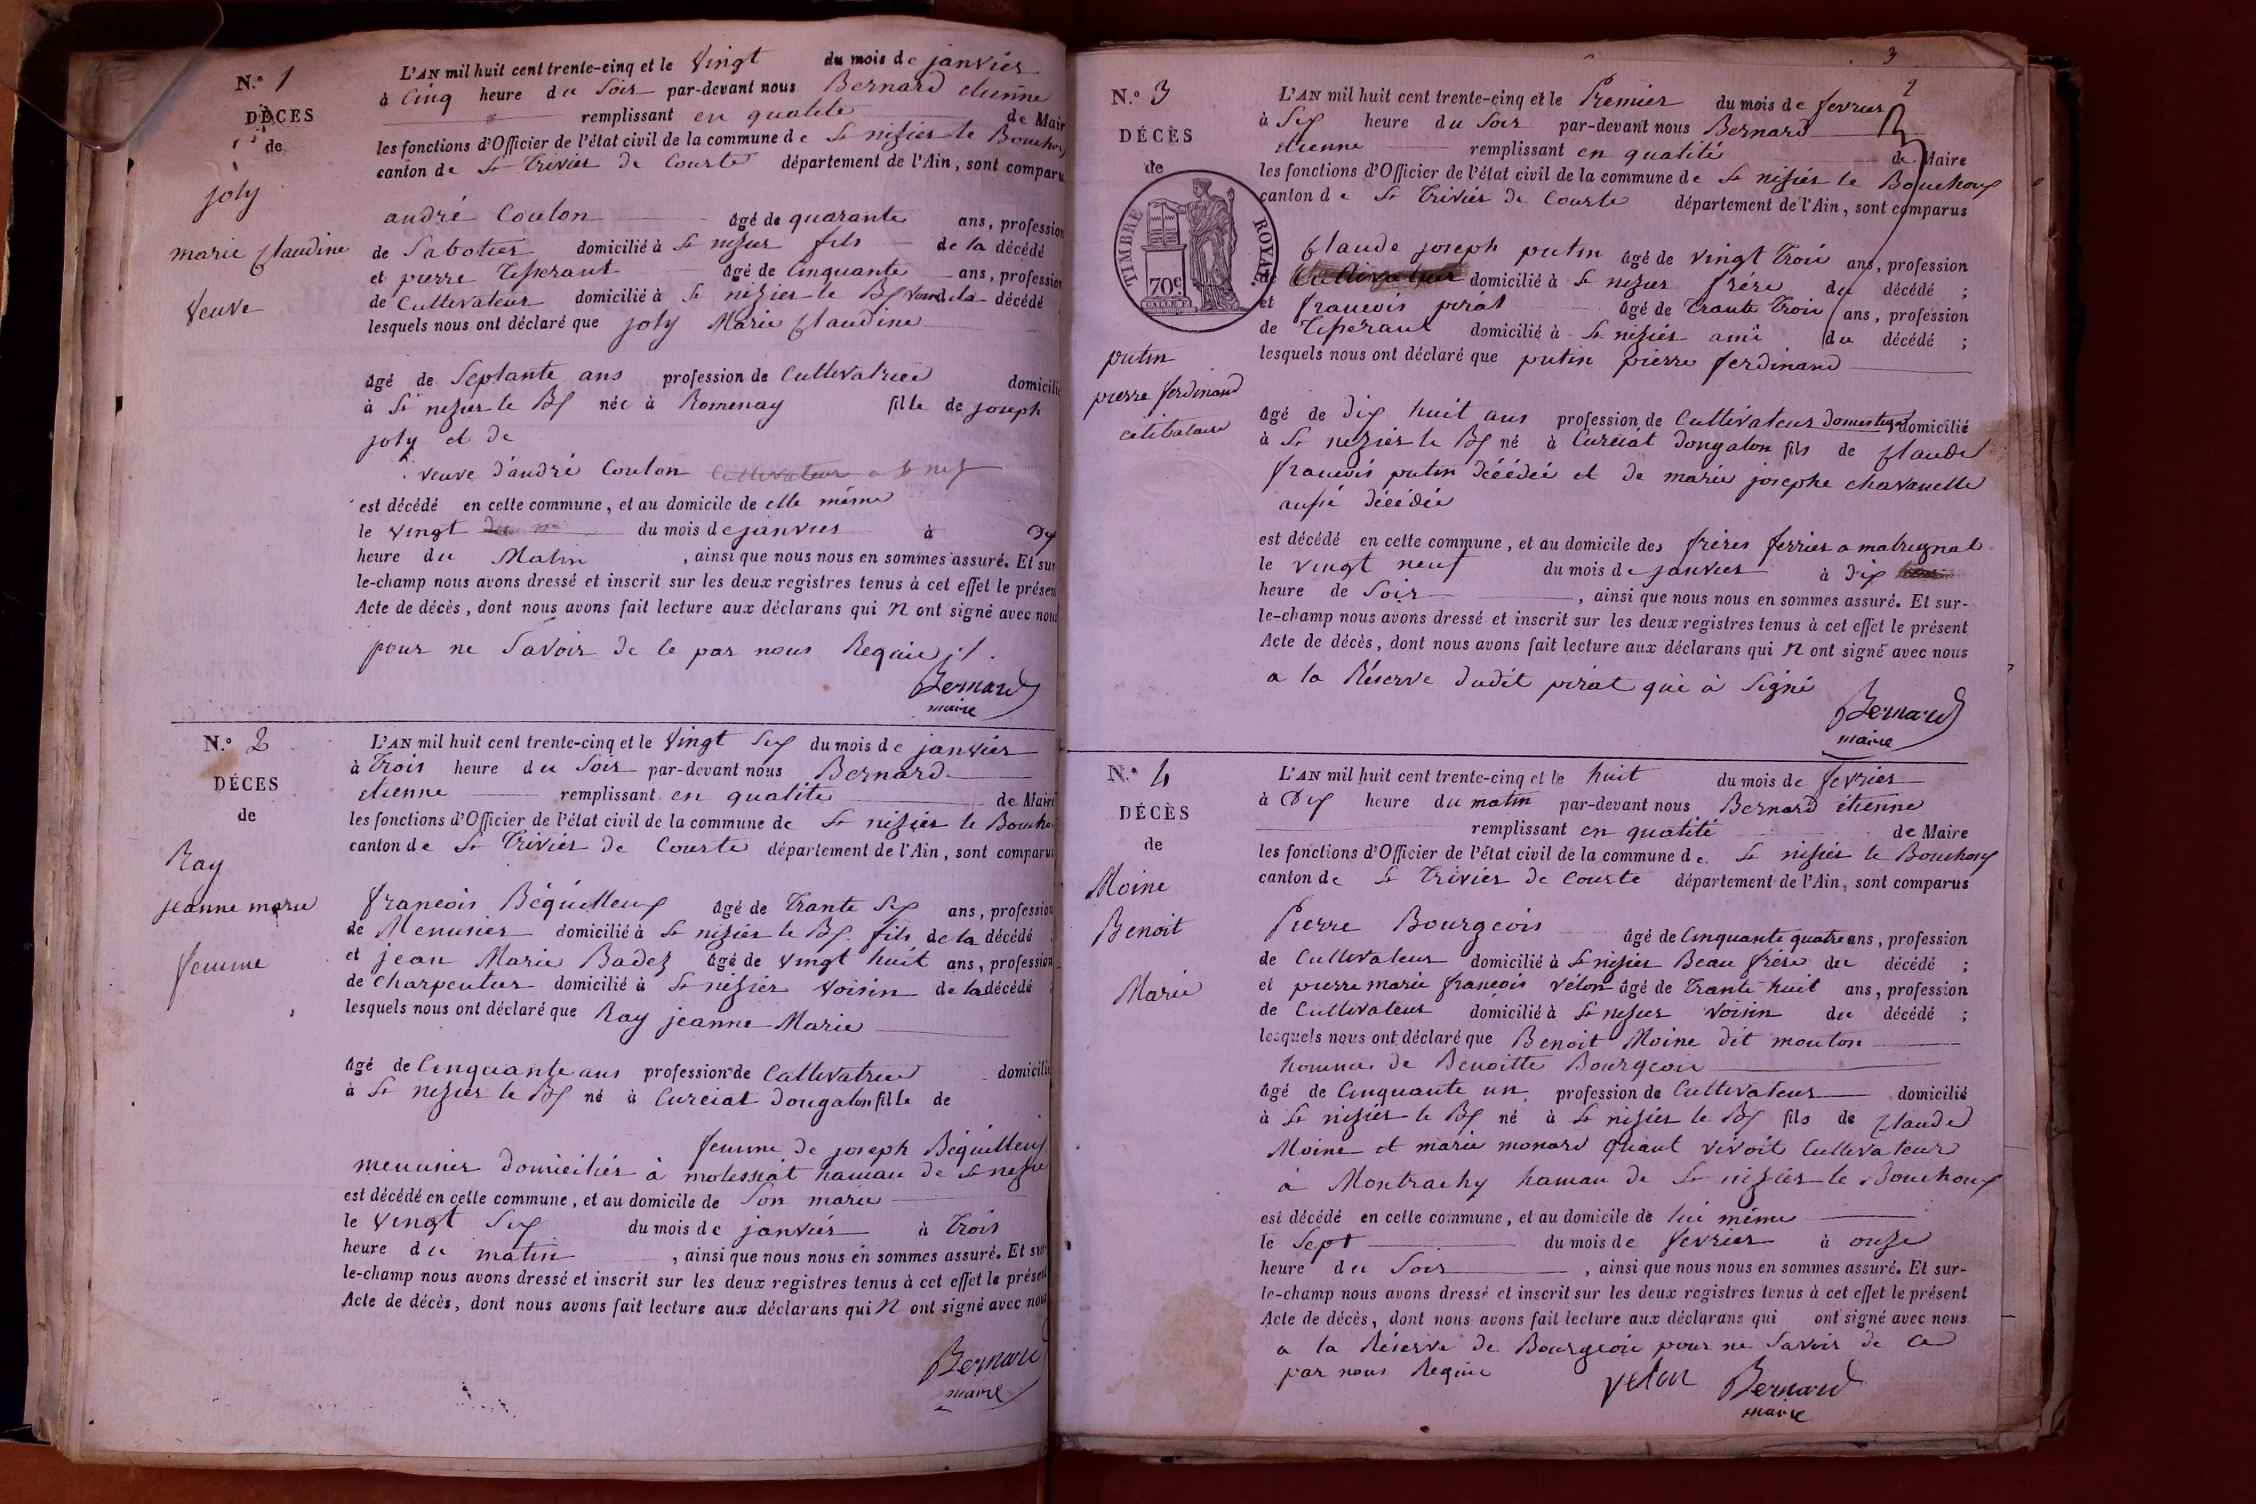 N.º 1
DÉCES
de
joly
marie claudine
veuve
L'AN mil huit cent trente-cinq et le Vingt du mois de janvier
à Cinq heure du Soir par-devant nous Bernard etienne
remplissant en qualité de Mair
les fonctions d'Officier de l'état civil de la commune de St nisier le Bouchou
canton de St Trivier de Courte département de l'Ain, sont comparu
andré Coulon âgé de quarante ans, profession
de Sabotier domicilié à St nisier fils de la décédé
et pierre Tisserant âgé de Cinquante ans, profession
de Cultivateur domicilié à St nizier le Bx de la décédé
lesquels nous ont déclaré que joly Marie Claudine
âgé de Septante ans profession de Cultivatrice domicilié
à St nizier le Bx née à Romenay fille de joseph
joly et de
veuve d'andré Coulon Cultivateur a St niz
est décédé en cette commune, et au domicile de elle même
le vingt du mois de janvier à Dix
heure du Matin, ainsi que nous nous en sommes assuré. Et sur
le-champ nous avons dressé et inscrit sur les deux registres tenus à cet effet le présent
Acte de décès, dont nous avons fait lecture aux déclarans qui N ont signé avec nous
pour ne Savoir de le par nous Requis
Bernard
maire
N.º 2
DÉCES
de
Ray
jeanne marie
femme
L'AN mil huit cent trente-cinq et le Vingt Six du mois de janvier
à Trois heure du Soir par-devant nous Bernard
etienne remplissant en qualité de Maire
les fonctions d'Officier de l'état civil de la commune de St nizier le Boucho
canton de St Trivier de Courte département de l'Ain, sont comparus
francois Béquilleux âgé de Trante Six ans, profession
de Menusier domicilié à St nizier le Bx. fils de la décédé
et jean Marie Badez âgé de vingt huit ans, profession
de Charpentier domicilié à St nizier Voisin de la décédé
lesquels nous ont déclaré que Ray jeanne Marie
âgé de Cinquante ans profession de Cultivatrice domicilié
à St nizier le Bx né à Curciat dongalon fille de
femme de joseph Béquilleux
menusier domicilier à molessiat hamau de St nizier
est décédé en cette commune, et au domicile de Son marie
le Vingt Six du mois de janvier à Trois
heure du matin, ainsi que nous nous en sommes assuré. Et sur
le-champ nous avons dressé et inscrit sur les deux registres tenus à cet effet le présent
Acte de décès, dont nous avons fait lecture aux déclarans qui N ont signé avec nous
Bernard
maire
3
2
N.º 3
DÉCÈS
de
TIMBRE ROYAL
70 c
putin
pierre ferdinand
célibataire
L'AN mil huit cent trente-cinq et le Premier du mois de fevrier
à Six heure du Soir par-devant nous Bernard
etienne remplissant en qualité de Maire
les fonctions d'Officier de l'état civil de la commune de St nizier le Bouchoux
canton de St Trivier de Courte département de l'Ain, sont comparus
Claude joseph putin âgé de vingt Trois ans, profession
de Cultivateur domicilié à St nizier frére du décédé ;
et francois pirat âgé de Trante Trois ans, profession
de Tisserant domicilié à St nizier ami du décédé ;
lesquels nous ont déclaré que putin pierre ferdinand
âgé de dix huit ans profession de Cultivateur domestique domicilié
à St nizier le Bx né à Curciat dongalon fils de Claude
francois putin décédé et de marie josephe chavanelle
aussi décédée
est décédé en cette commune, et au domicile des frères ferrier a matrignat
le vingt neuf du mois de janvier à dix
heure de Soir, ainsi que nous nous en sommes assuré. Et sur-
le-champ nous avons dressé et inscrit sur les deux registres tenus à cet effet le présent
Acte de décès, dont nous avons fait lecture aux déclarans qui N ont signé avec nous
a la Réserve dudit pirat qui à Signé
Bernard
maire
N.º 4
DÉCÈS
de
Moine
Benoit
Marié
L'AN mil huit cent trente-cinq et le huit du mois de fevrier
à Dix heure du matin par-devant nous Bernard étienne
remplissant en qualité de Maire
les fonctions d'Officier de l'état civil de la commune de St nisier le Bouchoux
canton de St Trivier de Courte département de l'Ain, sont comparus
Pierre Bourgeois âgé de Cinquante quatre ans, profession
de Cultivateur domicilié à St nizier Beau frére du décédé ;
et pierre marie francois vélon âgé de Trante huit ans, profession
de Cultivateur domicilié à St nizier voisin du décédé ;
lesquels nous ont déclaré que Benoit Moine dit mouton
homme de Benoitte Bourgeois
âgé de Cinquante un profession de Cultivateur domicilié
à St nizier le Bx né à St nizier le Bx fils de Claude
Moine et marie monard quant vivoit Cultivateur
à Montrachy hamau de St nizier le Bouchoux
est décédé en cette commune, et au domicile de lui même
le Sept du mois de fevrier à onze
heure du Soir, ainsi que nous nous en sommes assuré. Et sur-
le-champ nous avons dressé et inscrit sur les deux registres tenus à cet effet le présent
Acte de décès, dont nous avons fait lecture aux déclarans qui ont signé avec nous
a la Réserve de Bourgeois pour ne Savoir de ce
par nous Requis
velon Bernard
maire